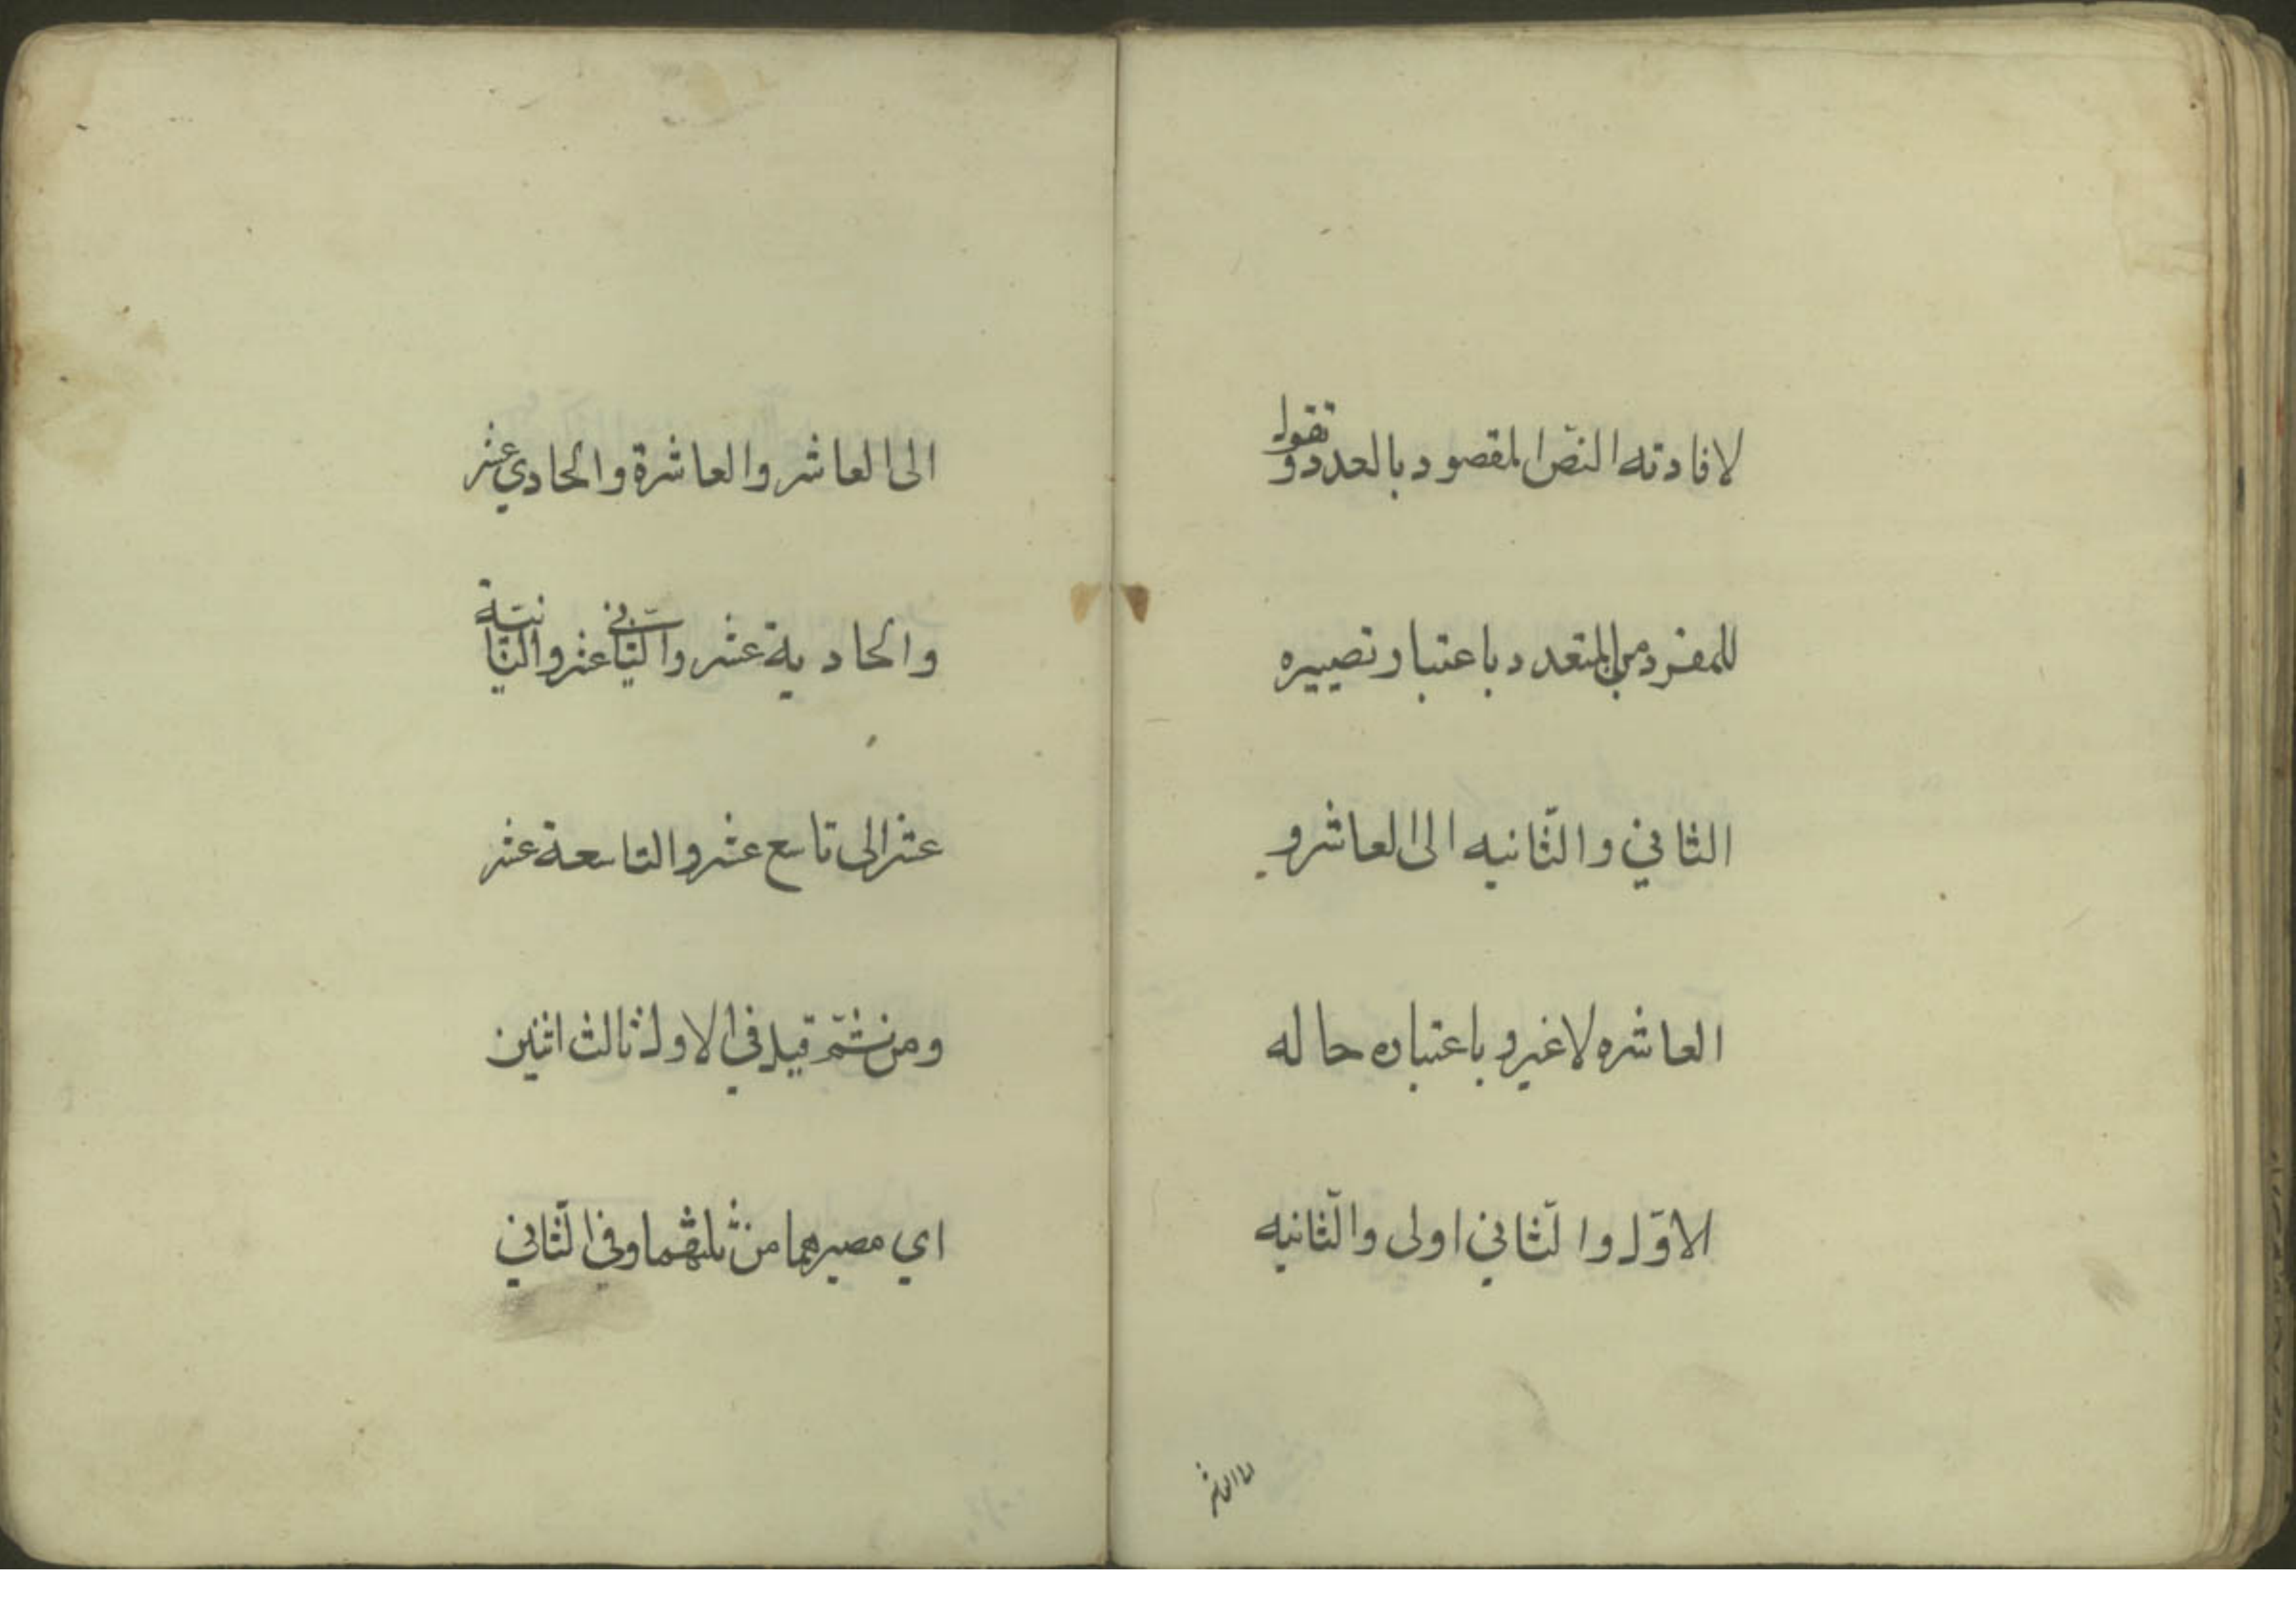 لافادته النصّ المقصود بالعدد وتقول
للمفرد من المتعدد باعتبار تصييره
الثاني والثّانيه الى العاشر و
العاشره لاغير و باعتباره حاله
الاوّل والثّاني اولى والثّانيه
الى العاشر والعاشرة والحادي عشر
والحادية عشر والثّاني عشر والثّانية
عشر الى تاسع عشر والتاسعة عشر
ومن ثمّ قيل في الاول ثالث اثنين
اي مصيرهما من ثلثهما وفي الثّاني